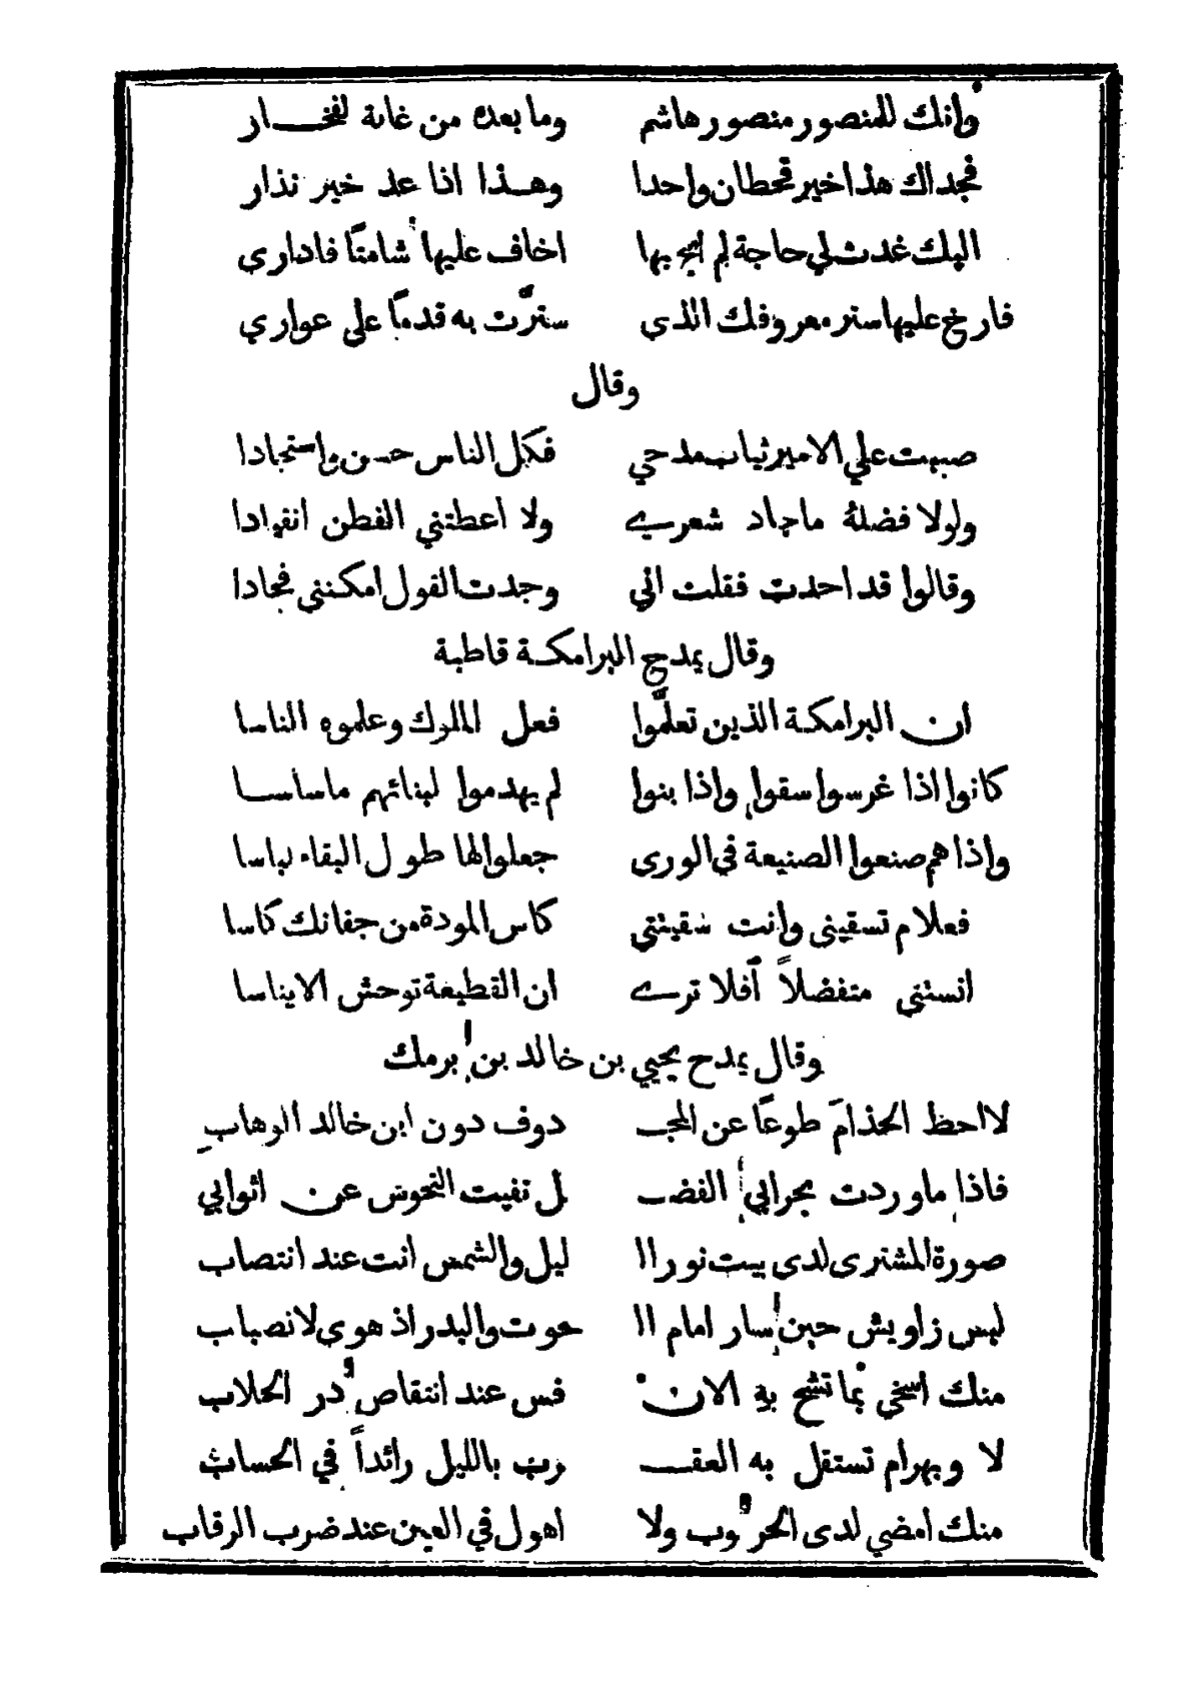 وانك للمنصور منصور هاشم وما بعده من غاية لفخـــار
فجداك هذا خير قحطان واحدا وهــذا اذا عد خير نذار
اليك غدت لي حاجة لم ابح بها اخاف عليها شامتًا فاداري
فارخ عليها ستر معروفك الذي سترّت به قدمًا على عواري
وقال
صببت علي الامير ثياب مدحي فكل الناس حسن واستجادا
ولولا فضلهُ ماجاد شعرى ولا اعطتني الفطن انقيادا
وقالوا قد اجدت فقلت اني وجدت القول امكنني فجادا
وقال يمدح البرامكة قاطبة
ان البرامكة الذين تعلّموا فعل الملوك وعلموه الناسا
كانوا اذا غرسوا سقوا واذا بنوا لم يهدموا لبنائهم ماساسا
واذا هم صنعوا الصنيعة في الورى جعلوا لها طول البقاء لباسا
فعلام تسقيني وانت سقيتني كاس المودة من جفانك كاسا
انستني متفضلاً أفلا ترى ان القطيعة توحش الايناسا
وقال يمدح يحيي بن خالد بن برمك
لا احظ الحذامَ طوعًا عن المجـ دوف دون ابن خالد الوهاب
فاذا ماوردت بحرابي الفضـ ل نفيت النحوس عن اثوابي
صورة المشترى لدى بيت نورا ا ليل والشمس انت عند انتصاب
ليس زاويش حين سار امام ا ا حوت والبدر اذ هوى لانصباب
منك اسخي بما تشح به الان فس عند انتقاص در الحلاب
لا وبهرام تستقل به العقـ رب بالليل رائداً في الحساب
منك امضي لدى الحروب ولا اهول في العين عند ضرب الرقاب